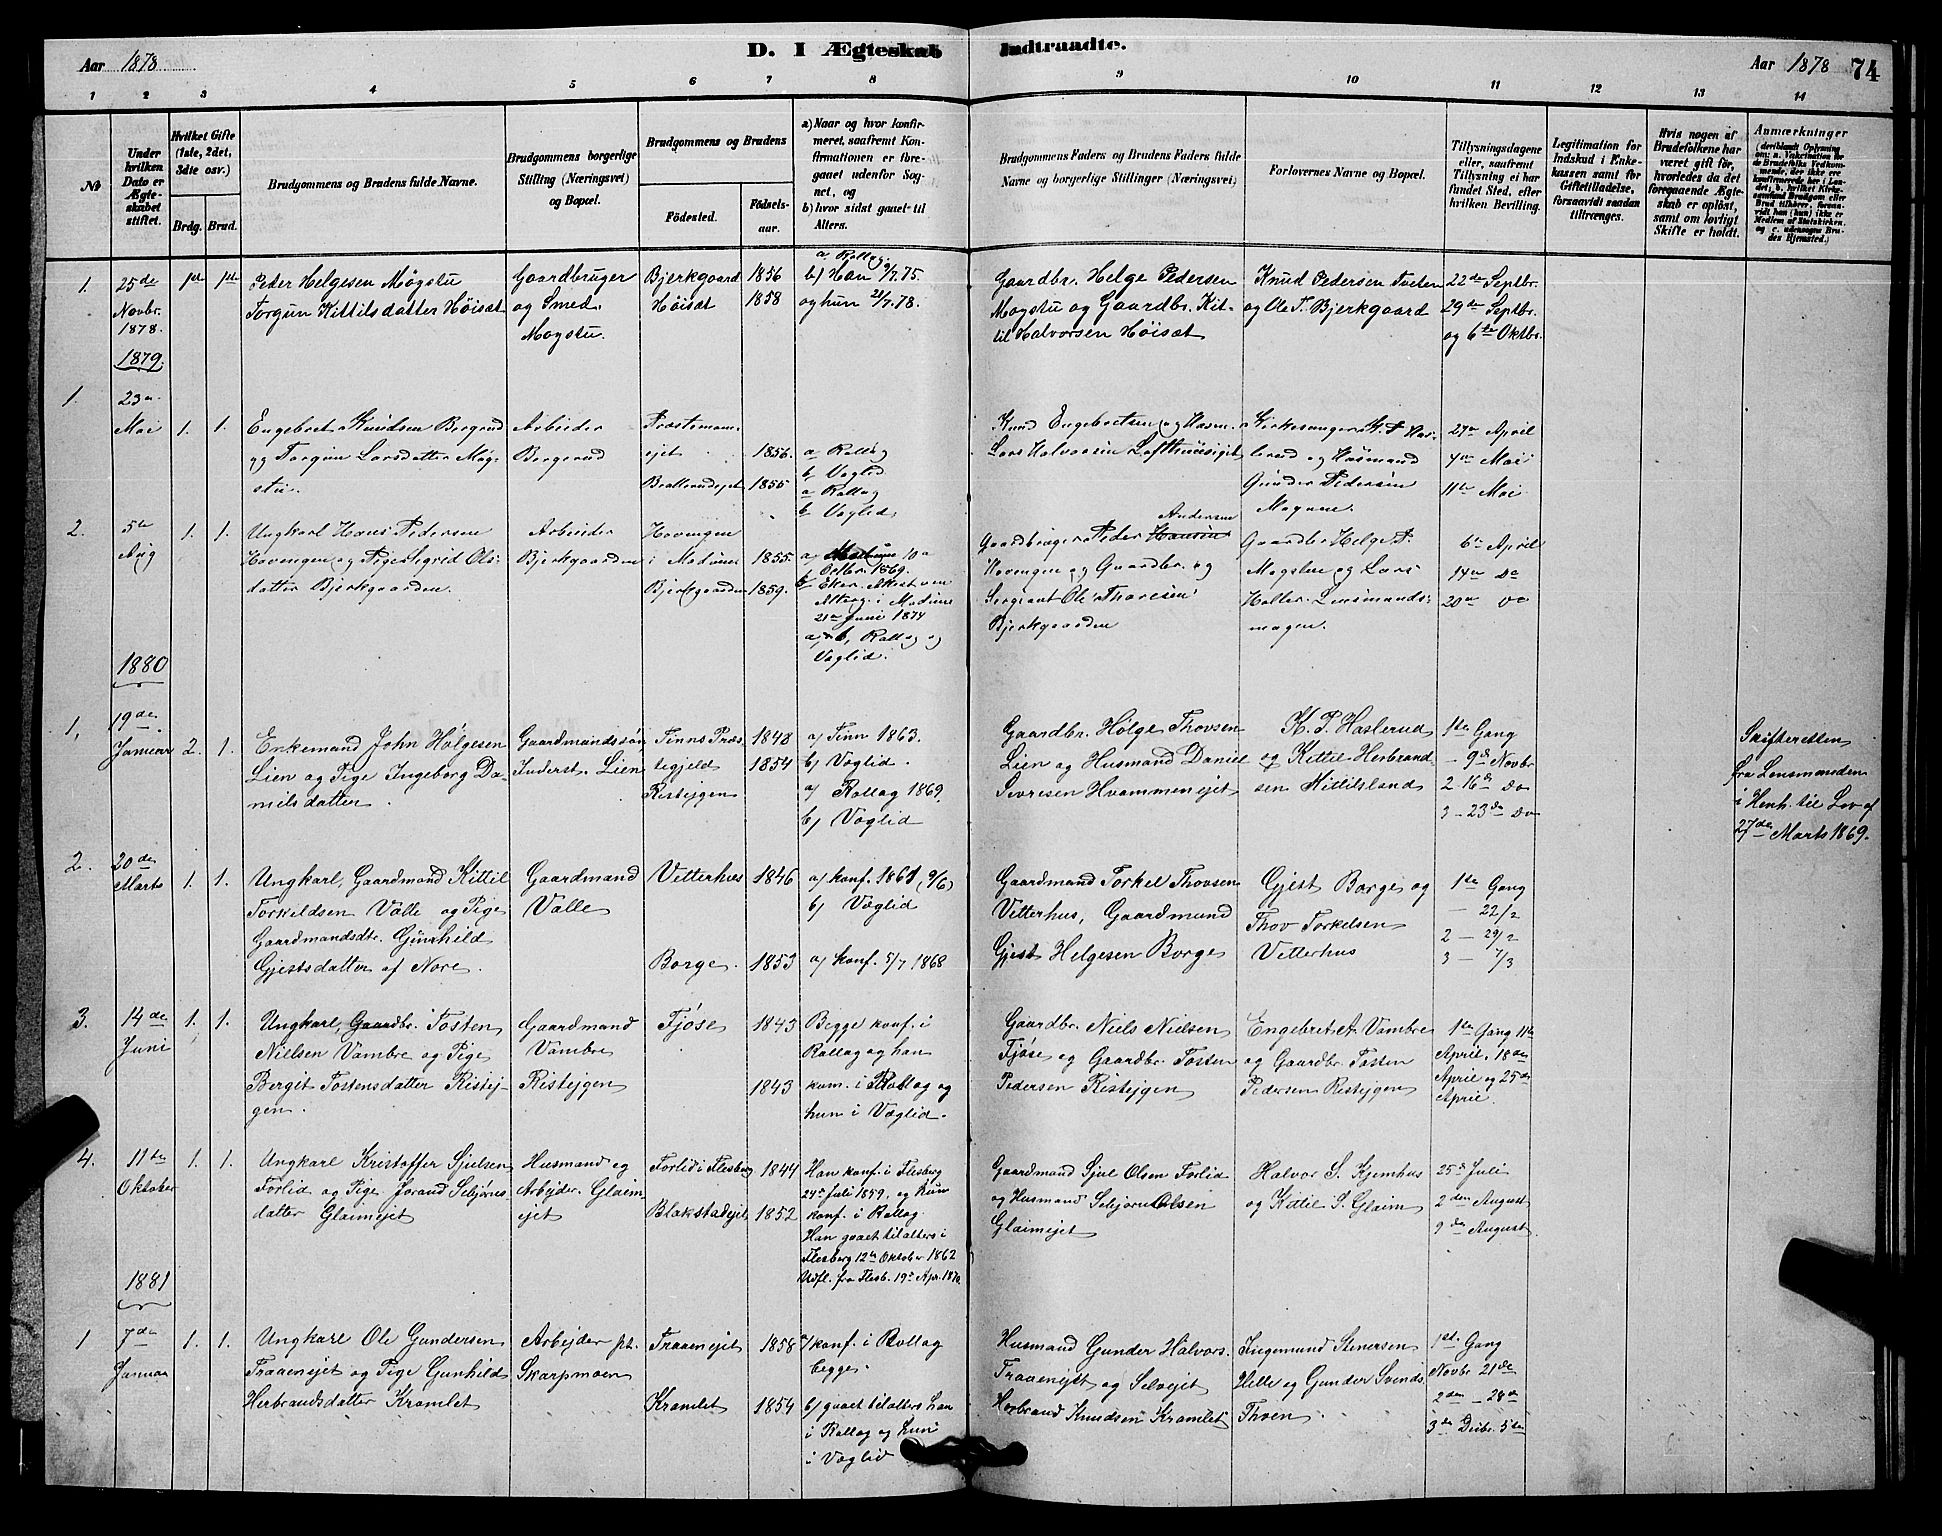 Aar 1878
D. I Ægteskab Indtraadte.
Aar 1878 74
1 2 3 4 5 6 7 8 9 10 11 12 13 14
№
Under hvilken Dato er Ægteskabet stiftet.
Hvilket Gifte (1ste, 2det, 3dte osv.)
Brdg. Brud.
Brudgommens og Brudens fulde Navne.
Brudgommens borgerlige Stilling (Næringsvei) og Bopæl.
Brudgommens og Brudens
Fødested.
Fødselsaar.
a) Naar og hvor konfirmeret, saafremt Konfirmationen er foregaaet udenfor Sognet, og
b) hvor sidst gaaet til Alters.
Brudgommens Faders og Brudens Faders fulde Navne og borgerlige Stillinger (Næringsvei)
Forlovernes Navne og Bopæl.
Tillysningsdagene eller, saafremt Tillysning ei har fundet Sted, efter hvilken Bevilling.
Legitimation for Indskud i Enkekassen samt for Giftetilladelse, forsaavidt saadan tiltrænges.
Hvis nogen af Brudefolkene har været gift før, hvorledes da det foregaaende Ægteskab er opløst, samt om lovligt Skifte er holdt.
Anmærkninger
1. 25de Novbr. 1878. 1ste 1ste
Peder Helgesen Mogstu
Torgun Kittilsdatter Høisæt
Gaardbruger
og Smed.
Mogstu.
Bjerkgaard 1856
Høisæt 1858
a, Rollag
b) Han 9/7.75.
og hun 21/7.78.
Gaardbr. Helge Pedersen
Mogstu og Gaardbr. Kit-
til Halvorsen Høisæt
Knud Pedersen Tveten
og Ole T. Bjerkgaard
22de Septbr.
29de Septbr.
og 6te Oktbr.
1879.
1. 23de Mai 1. 1.
Engebret Knudsen Bergerud
og Torgun Larsdatter Mog-
stu.
Arbeider
Bergerud
Præstemoen-
ejet 1856.
Bratterudejet 1855
a Rollag
b Væglid
a Rollag
b Væglid.
Knud Engebretsen og Husm.
Lars Halvorsen Lofthusejet
Kirkesanger K. P. Has-
lerud og Husmand
Gunder Pedersen
Mogene.
27de April
4de Mai
11te Mai
2. 5te Aug 1. 1.
Ungkarl Hans Pedersen
Hovengen og Pige Sigrid Ols-
datter Bjerkgaarden.
Arbeider
Bjerkgaarden
Hovengen
i Modum 1855.
Bjerkgaarden 1859.
a, 10de
Octbr. 1869.
b, Eker. Attest om
Alterg. i Modum
21de Juni 1874
a, b, Rollag og
Væglid.
Gaardbruger Peder Hansen Andersen
Hovengen og Gaardbr. og
Sergeant Ole Thoresen
Bjerkgaarden
Gaardbr Helge P.
Mogstue og Lars
Holter Lensmands-
mogen.
6te April
14de Do
20de Do
1880
1. 19de Januar 2. 1.
Enkemand John Holgesen
Lien og Pige Ingeborg Da-
nielsdatter.
Gaardmandssøn
Inderst. Lien
Tinns Præs- 1848
tegjeld 1854
Ristejgen
a) Tinn 1863.
b) Væglid.
a) Rollag 1869,
b) Væglid
Gaardbr. Holge Thovsen
Lien og Husmand Daniel
Sevresen Hvammenejet
K. P. Haslerud
og Kittil Herbrand-
sen Kittilsland
1ste Gang
- 9de Novbr
2 16de Do
3 - 23de Do
Skifteretten
fra Lensmanden
i Henh. til Lov af
27de Marts 1869.
2. 20de Marts 1. 1.
Ungkarl, Gaardmand Kittil
Torkildsen Valle og Pige
Gaardmandsdtr. Gunhild
Gjestsdatter af Nore.
Gaardmand
Valle
Vetterhus 1846
Borge. 1853
a) konf. 1861 (9/6)
b) Væglid
a) konf. 5/7 1868
Gaardmand Torkel Thovsen
Vetterhus, Gaardmand
Gjest Helgesen Borge
Gjest Borge og
Thov Torkelsen
Vetterhus
1ste Gang
- 22/2
2 - 29/2
3 - 7/3
3. 14de Juni 1. 1.
Ungkarl, Gaardbr. Tosten
Nielsen Vambre og Pige
Bergit Tostensdatter Ristej-
gen.
Gaardmand
Vambre
Ristejgen
Fjøse 1845
1843
Begge konf. i
Rollag og han
kom. i Rollag og
hun i Væglid.
Gaardbr. Niels Nielsen
Fjøse og Gaardbr. Tosten
Pedersen Ristejgen
Engebret A. Vambre
og Gaardbr. Tosten
Pedersen Ristejgen
1ste Gang 11te
April, 18de
April og 25de
April.
4. 11te Oktober 1. 1.
Ungkarl Kristoffer Sjulsen
Forlid og Pige Jorand Sebjørns-
datter Glaimejet
Husmand og
Arbejder. Glaim-
ejet
Forlid i Flesberg 1844
Blakstadejet 1852
Han konf. i Flesberg
24de Juli 1859, og hun
konf. i Rollag.
Han gaaet til alters i
Flesberg 12te Oktober 1862
Udfl. fra Flesb. 19de Apr. 1870.
Gaardmand Sjul Olsen Forlid
og Husmand Sebjørn Olsen
Glaimejet
Halvor S. Kjemhus
og Kittil S. Glaim
25de Juli
2den August
9de August
1881
1 7de Januar 1. 1.
Ungkarl Ole Gundersen
Traaenejet og Pige Gunhild
Herbrandsdatter Kromlet
Arbejder pt.
Skarpmoen
Traaenejet 1858
Kromlet 1854
a) konf. i Rollag
begge.
b) gaaet til alters han
i Rollag og hun
i Væglid
Husmand Gunder Halvors.
Traaenejet og Selvejet
Herbrand Knudsen Kromlet
Tingemund Stenersen
Helle og Gunder Svends.
Thoen.
1ste Gang
Novbr 21de
2den - 28de
3de Decbr. 5te